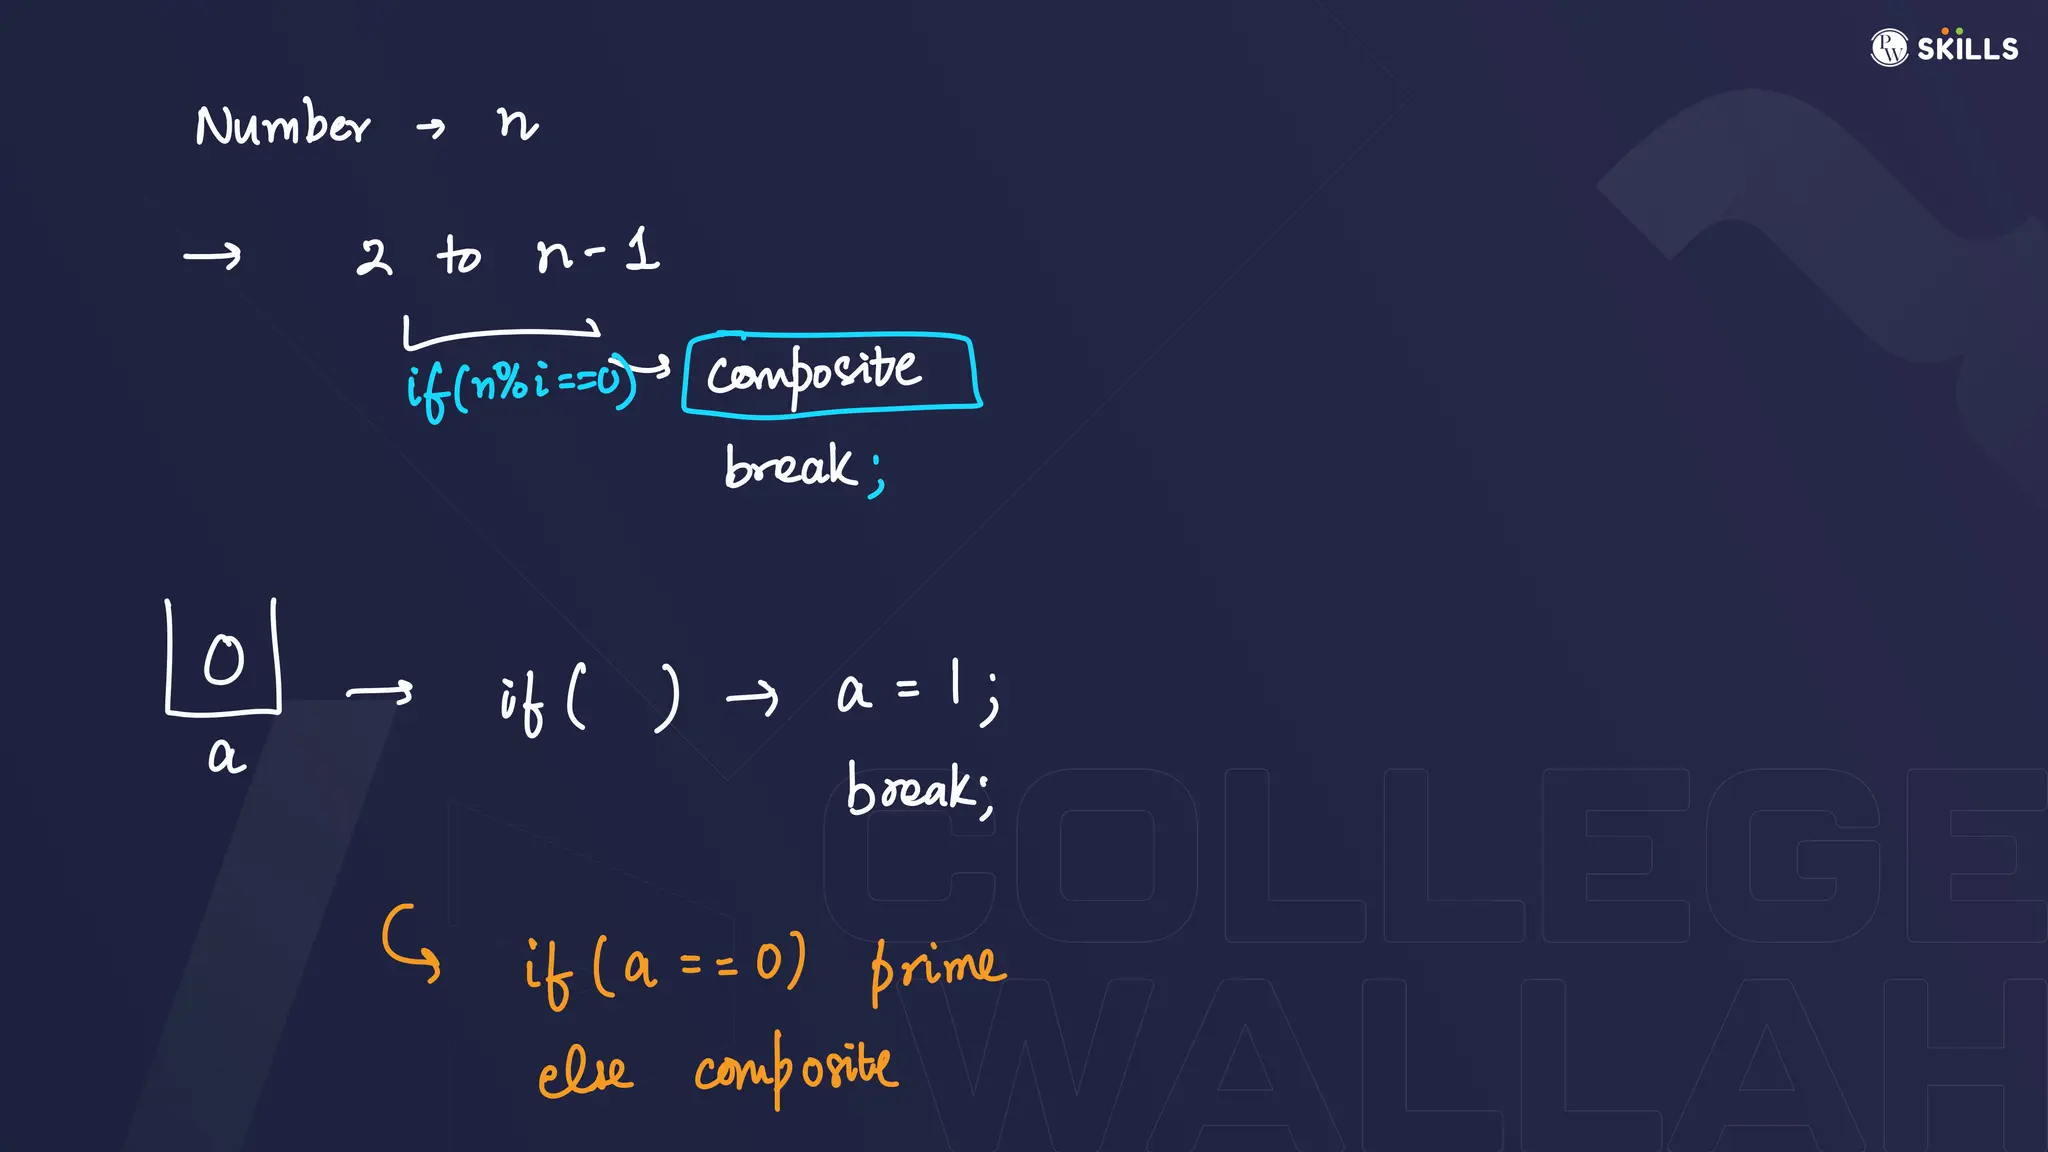 PW SKILLS
Number → n
→ 2 to n-1
if(n%i==0) → composite
break;
0
a
→ if( ) → a = 1;
break;
if(a==0) prime
else composite
COLLEGE
WALLAH